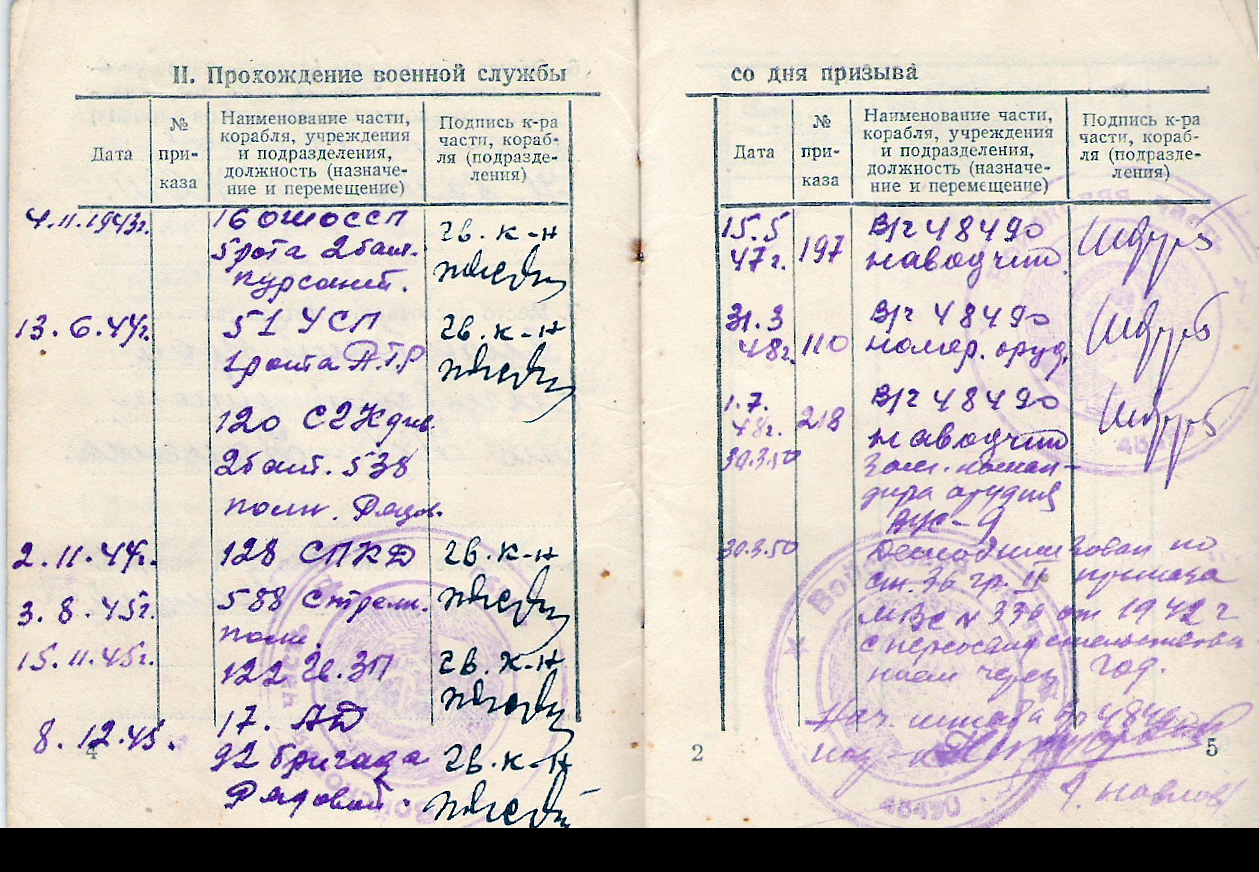 II. Прохождение военной службы
Дата
№
при-
каза
Наименование части,
корабля, учреждения
и подразделения,
должность (назначе-
ние и перемещение)
Подпись к-ра
части, кораб-
ля (подразде-
ления)
4.11.1943г.
16 ОШОССП
5 рота 2 бат.
курсант.
гв. к-н
13.6.44г.
51 УСП
1 рота П.Т.Р
гв. к-н
120
2 бат. 538
полк. Рядов.
2.11.44г.
128 СПКД
гв. к-н
3.8.45г
588 Стрелк.
полк.
15.11.45г.
122 гв. ЗП
гв. к-н
8.12.45.
17. АД
92 бригада
Рядовой
гв. к-н
4
со дня призыва
Дата
№
при-
каза
Наименование части,
корабля, учреждения
и подразделения,
должность (назначе-
ние и перемещение)
Подпись к-ра
части, кораб-
ля (подразде-
ления)
15.5
47г.
197
В/ч 48490
наводчик
31.3
48г.
110
В/ч 48490
номер. оруд.
1.7.
48г.
218
В/ч 48490
наводчик
30.3.50
Зам. коман-
дира орудия
ВУС-9
30.3.50
Демобилизован по
ст. 36 гр. II приказа
МВС № 336 от 1942 г
с переосвидетельствова
нием через год.
Нач. штаба в/ч 48490
2
5
48490